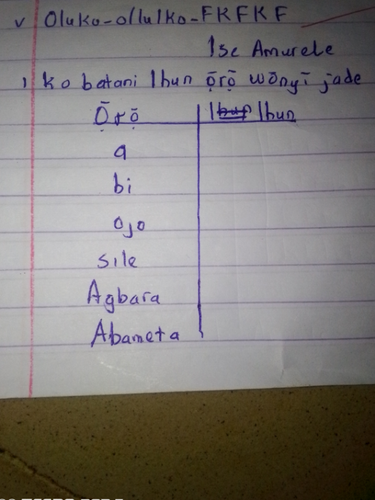 v Oluko-ollulko-FKFKF
Ise Amurele
1 ko batani Ibun ọ̄rọ̄ wōnyī jade
Ọ̄rọ̄ Ibun
a
bi
ojo
sile
Agbara
Abameta